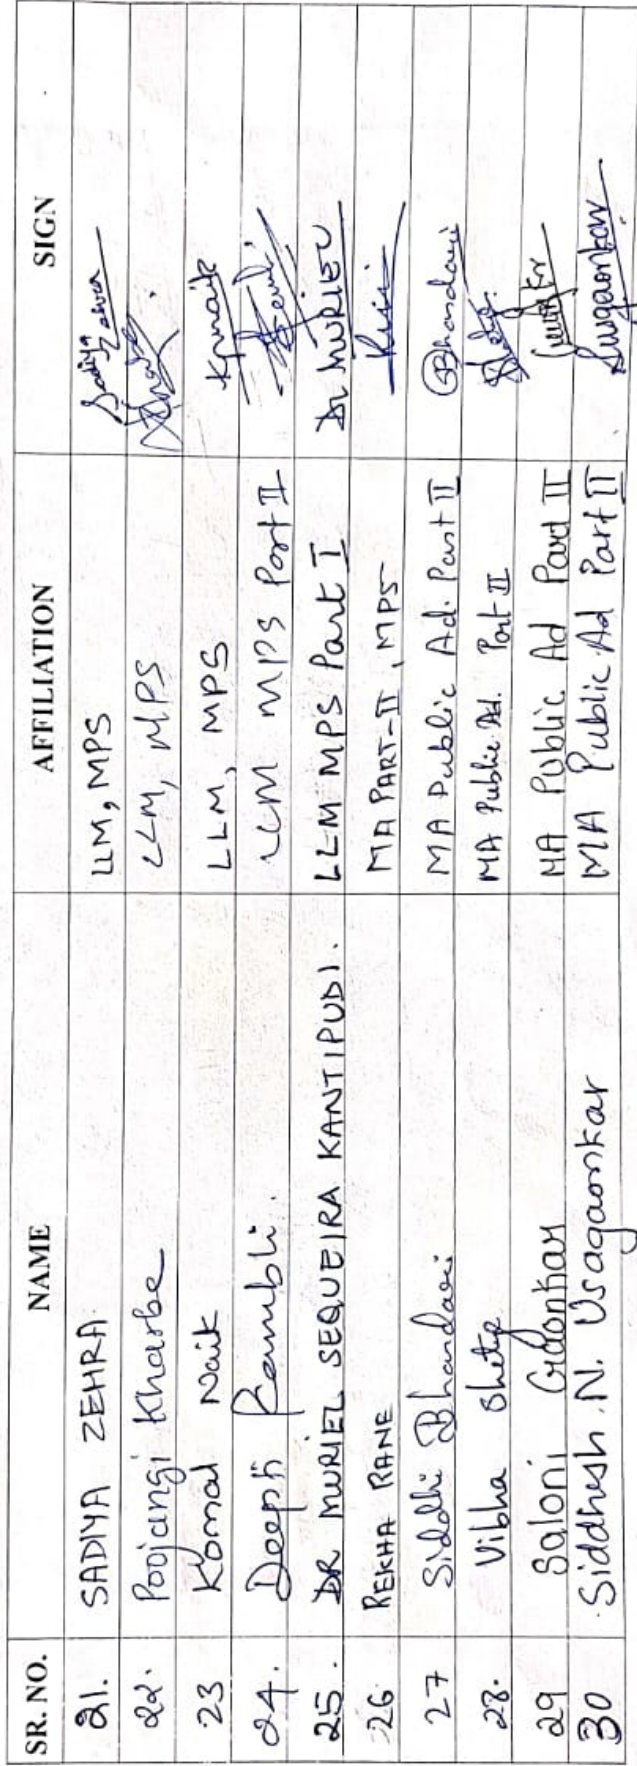 SR. NO. NAME AFFILIATION SIGN
21. SADIYA ZEHRA LLM, MPS Sadiya Zehra
22. Poojangi Kharbe LLM, MPS
23 Komal Naik LLM, MPS Kpnaik
24. Deepti Rambli. LLM MPS Part II
25. DR MURIEL SEQUEIRA KANTIPUDI. LLM MPS Part I Dr MURIEL
26. REKHA RANE MA PART-II, MPS
27 Siddhi Bhandari MA Public Ad. Part II SBhandari
28. Vibha Shetye MA Public Ad. Part II
29 Saloni Gaonkar MA Public Ad Part II
30 Siddhesh N. Usagaonkar MA Public Ad Part II Susgaonkar